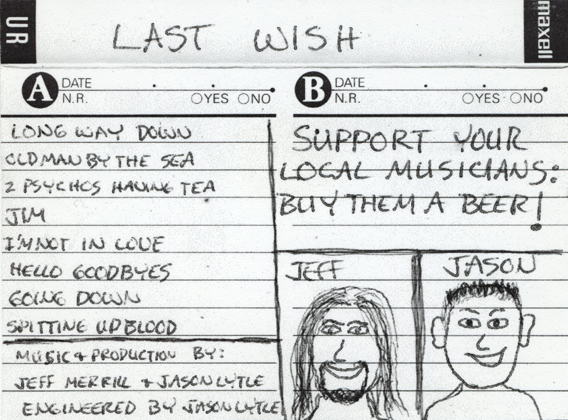 UR
LAST WISH
maxell
A DATE
N.R. YES NO
LONG WAY DOWN
OLD MAN BY THE SEA
2 PSYCHOS HAVING TEA
JIM
I'M NOT IN LOVE
HELLO GOODBYES
GOING DOWN
SPITTING UP BLOOD
MUSIC & PRODUCTION BY:
JEFF MERRILL & JASON LYTLE
ENGINEERED BY JASON LYTLE
B DATE
N.R. YES NO
SUPPORT YOUR
LOCAL MUSICIANS:
BUY THEM A BEER!
JEFF
JASON